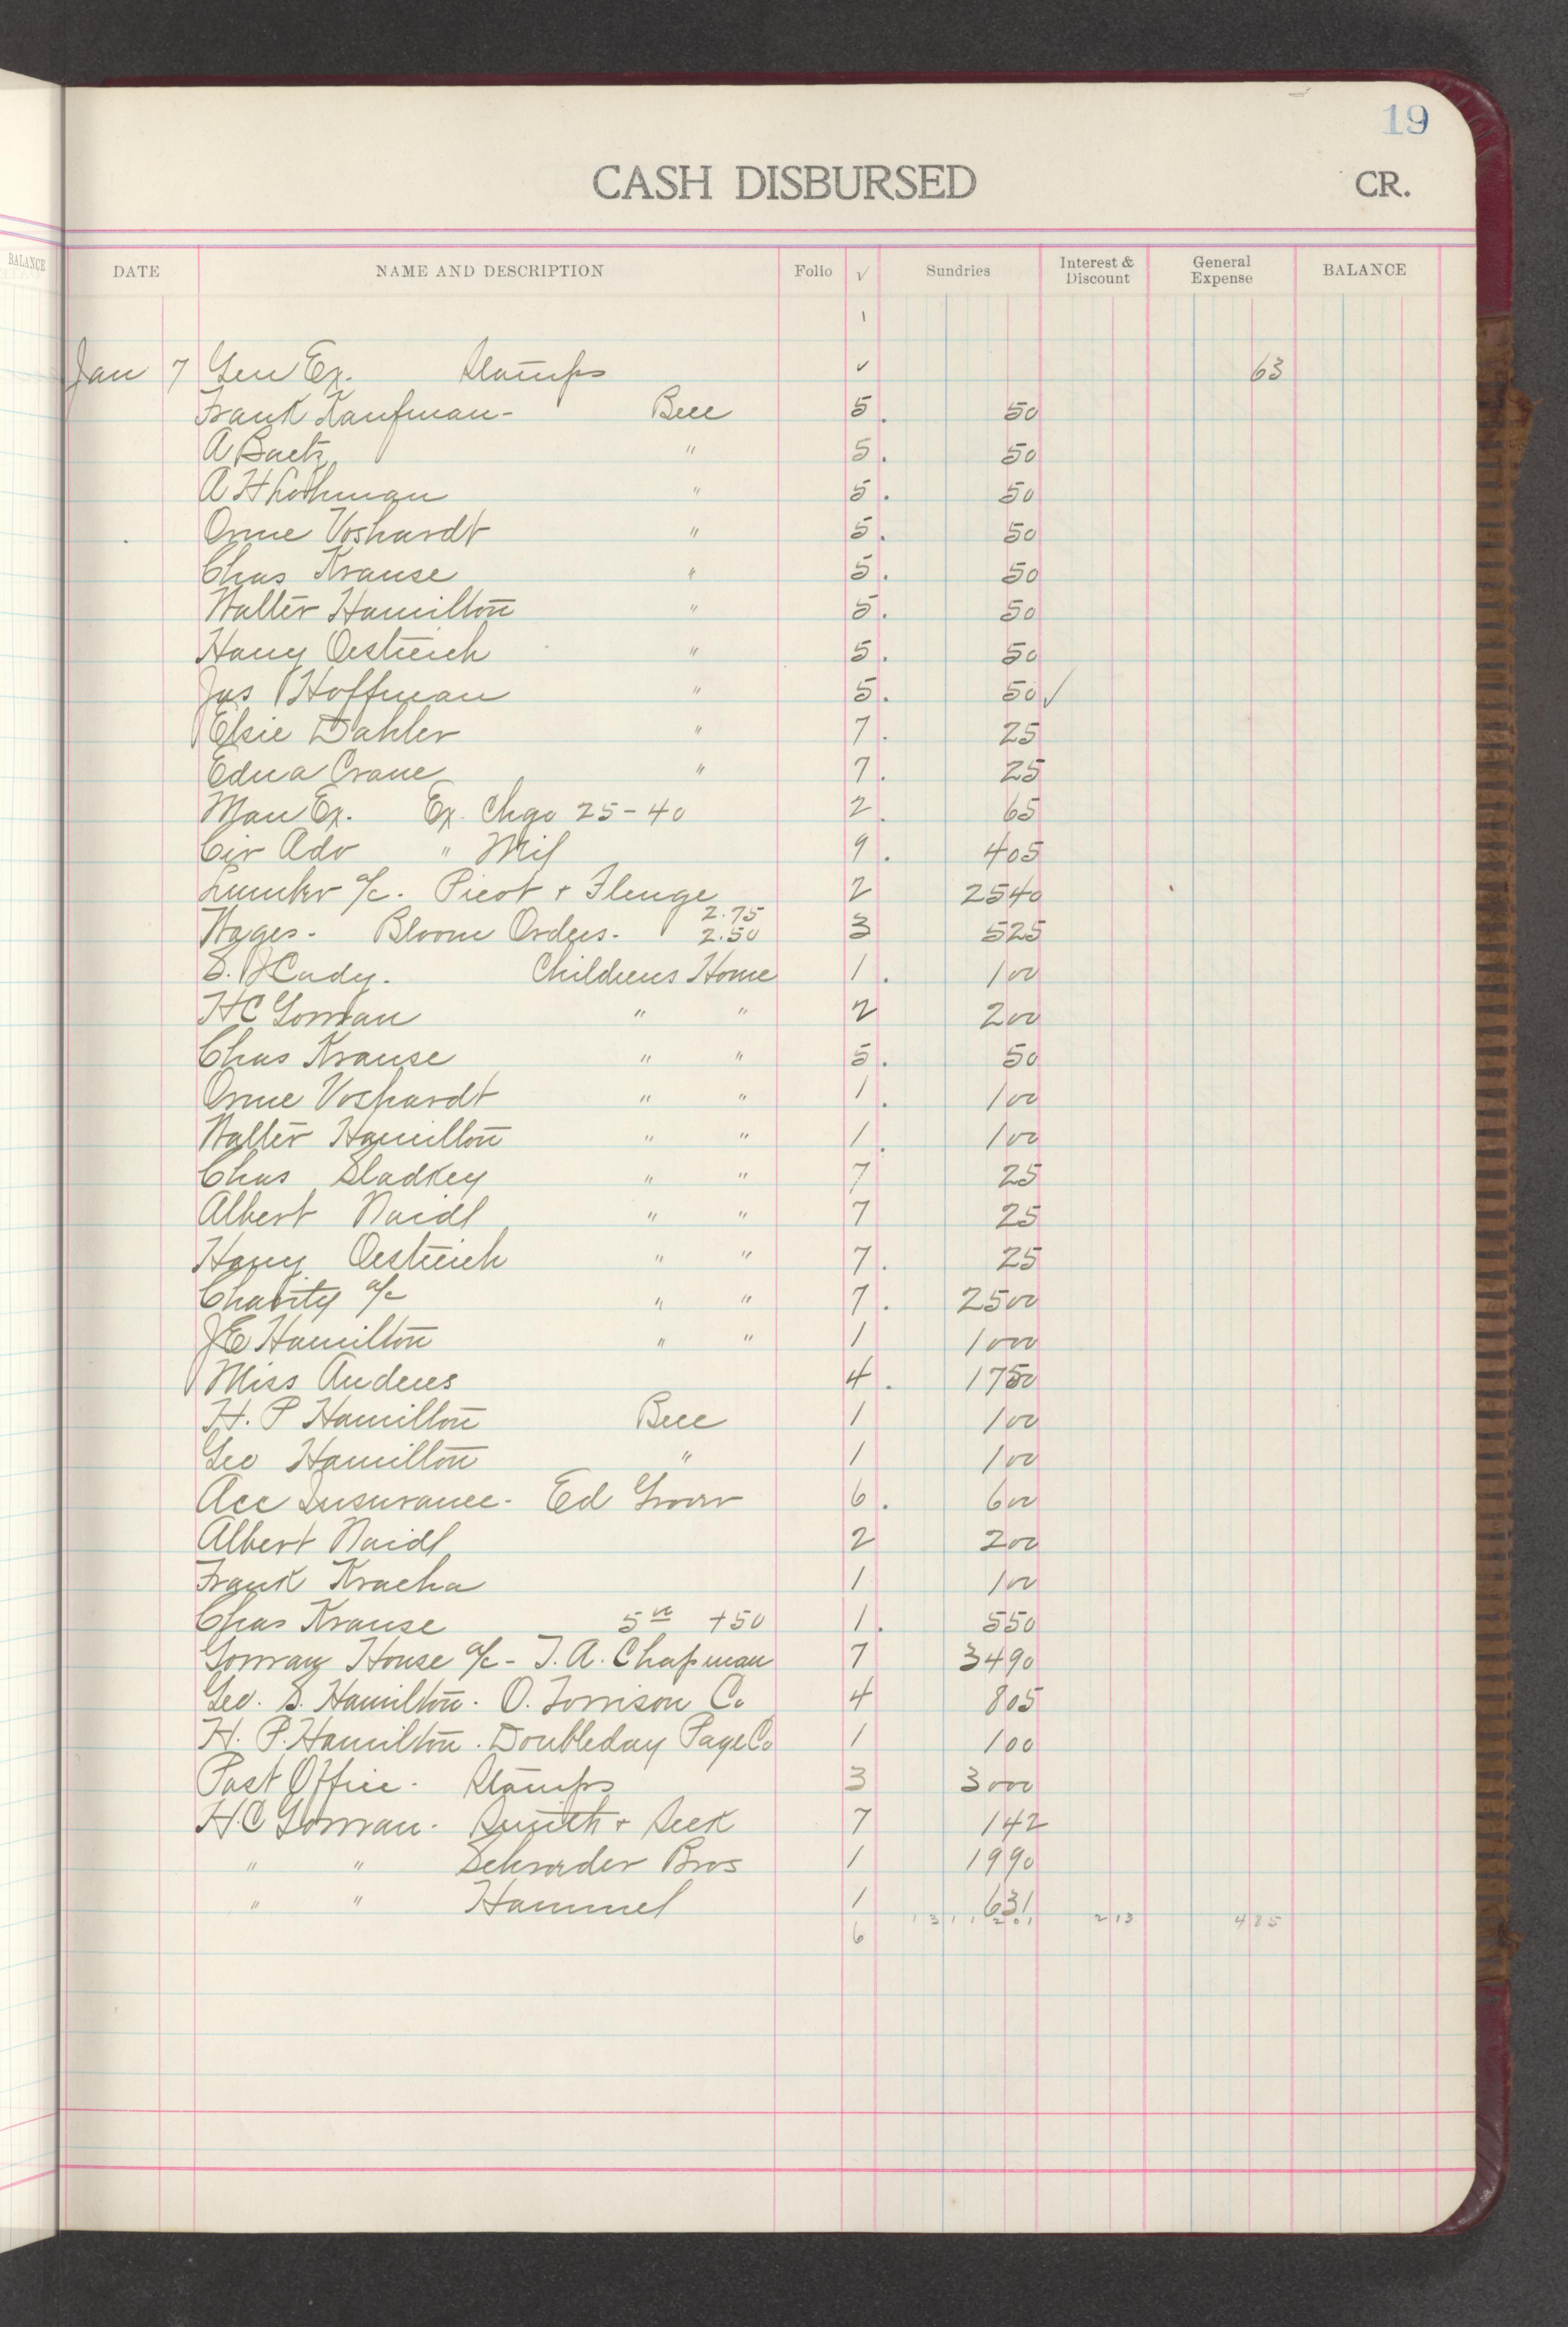 19
CASH DISBURSED CR.
BALANCE
DATE NAME AND DESCRIPTION Folio √ Sundries Interest & Discount General Expense BALANCE
1
Jan 7 Gen Ex. Stamps ✓ 63
Frank Kaufman - Bee 5. 50
A Baetz " 5. 50
A H Lohman " 5. 50
Orme Voshardt " 5. 50
Chas Krause " 5. 50
Walter Hamilton " 5. 50
Harry Oestreich " 5. 50
Jas Hoffman " 5. 50 ✓
Elsie Dahler " 7. 25
Edna Crane " 7. 25
Man Ex. Ex. Chgo 25-40 2. 65
Cir Adv " Mil 9. 405
Lumber a/c. Picot & Flenge 2 2540
Wages - Bloom Orders - 2.75 2.50 3 525
S. J Cady. Childrens Home 1. 100
HC Gorman " " 2 200
Chas Krause " " 5. 50
Orme Voshardt " " 1. 100
Walter Hamilton " " 1. 100
Chas Sladkey " " 7 25
Albert Naidl " " 7 25
Harry Oestreich " " 7. 25
Charity a/c " " 7. 2500
JE Hamilton " " 1 1000
Miss Anderes 4. 1750
H. P Hamilton Bee 1 100
Geo Hamilton " 1 100
Acc Insurance - Ed 6. 600
Albert Naidl 2 200
Frank Kracha 1 100
Chas Krause 5 00 + 50 1. 550
Gorman House a/c - T. A. Chapman 7 3490
Geo. S. Hamilton. O. Torrison Co 4 805
H. P. Hamilton. Doubleday Page Co 1 100
Post Office - Stamps 3 3000
H.C Gorman - Smith & Seek 7 142
" " Schroeder Bros 1 1990
" " Hammel 1 631
6 1311201 213 485